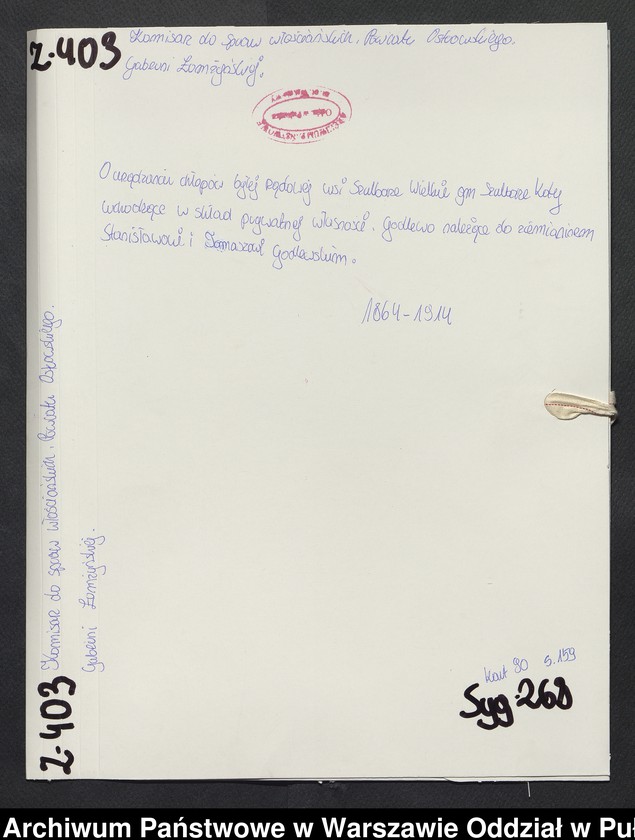 Z-403
Komisarz do spraw włościańskich, Powiatu Ostrowskiego,
Guberni Łomżyńskiej.
ARCHIWUM PAŃSTWOWE
O urządzaniu chłopów byłej rządowej wsi Szulborze Wielkie gm Szulborze Koty
wchodzące w skład prywatnej własności. Godlewo należące do ziemianinem
Stanisławowi i Tomaszowi Godlewskim.
1864-1914
Komisarz do spraw włościańskich, Powiatu Ostrowskiego.
Guberni Łomżyńskiej.
Z-403
kart 90 s.159
Syg-268
Archiwum Państwowe w Warszawie Oddział w Pu